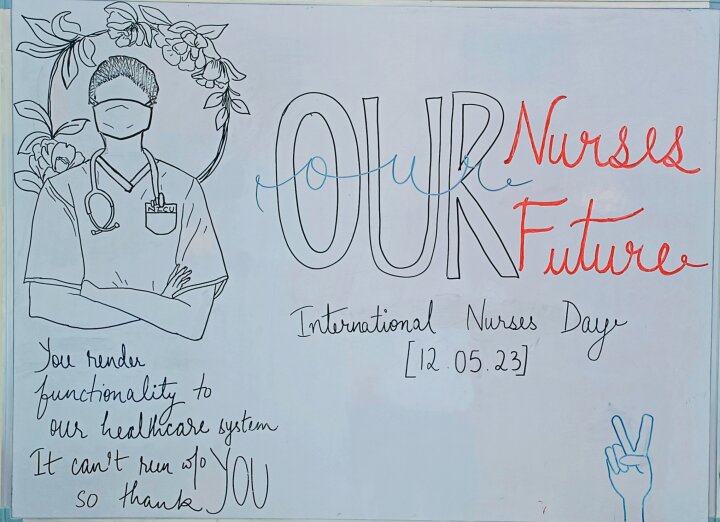 NICU
OUR
our
Nurses
Future
International Nurses Day
[12.05.23]
You render
functionality to
our healthcare system
It can't run w/o YOU
so thank